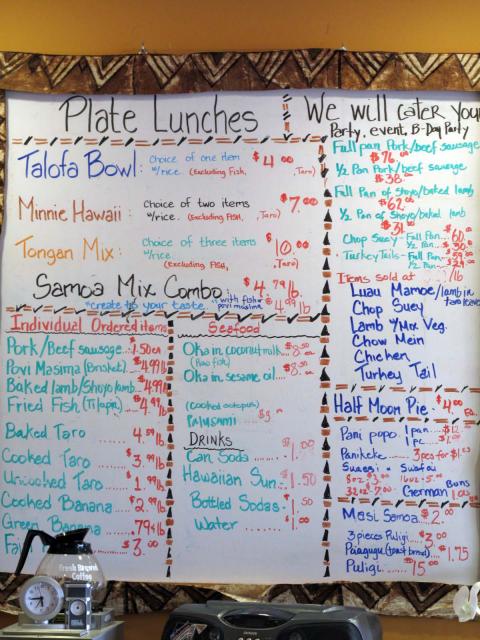 Plate Lunches
Talofa Bowl: Choice of one item $4.00
w/rice. (Excluding Fish, Taro)
Minnie Hawaii: Choice of two items $7.00
w/rice. (Excluding Fish, Taro)
Tongan Mix: Choice of three items $10.00
w/rice. (Excluding Fish, Taro)
Samoa Mix Combo: $4.79 lb
"create to your taste" with fish or povi masima $4.99 lb
Individual Ordered items
Pork/Beef sausage...1.50 ea
Povi Masima (Brisket)...$4.99 lb
Baked lamb/Shoyo lamb...$4.99 lb
Fried Fish (Tilapia)...$4.99 lb
Baked Taro ......4.59 lb
Cooked Taro ......$3.99 lb
Uncooked Taro ....$1.99 lb
Cooked Banana ....$2.99 lb
Green Banana .....79¢ lb
$3.00
Seafood
Oka in coconut milk...$8.50 ea
(Raw fish)
Oka in sesame oil....$8.50
(cooked octopus)
Palusami
DRINKS
Can Soda....$1.00
Hawaiian Sun..$1.50
Bottled Sodas..$1.50
Water ........$1.00
We will cater your
Party, event, B-Day Party
Full pan Pork/beef sausage
$76.00
1/2 Pan Pork/beef sausage
$38.00
Full Pan of Shoyo/baked lamb
$62.00
1/2 Pan of Shoyo/baked lamb
$31.00
Chop Suey - Full Pan...$60.00
1/2 Pan...$30.00
Turkey Tails - Full Pan..
1/2 Pan..
Items sold at /lb
Luau Mamoe/lamb in taro leaves
Chop Suey
Lamb w/Mix Veg.
Chow Mein
Chicken
Turkey Tail
Half Moon Pie.$4.00 ea.
Pani popo 1 pan...$12
1 pc...
Panikeke....3 pcs for $1.00
German Buns
Masi Samoa..$2.00
3 pieces Puligi...$3.00
$1.75
Puligi......$15.00
Fresh Brewed
Coffee